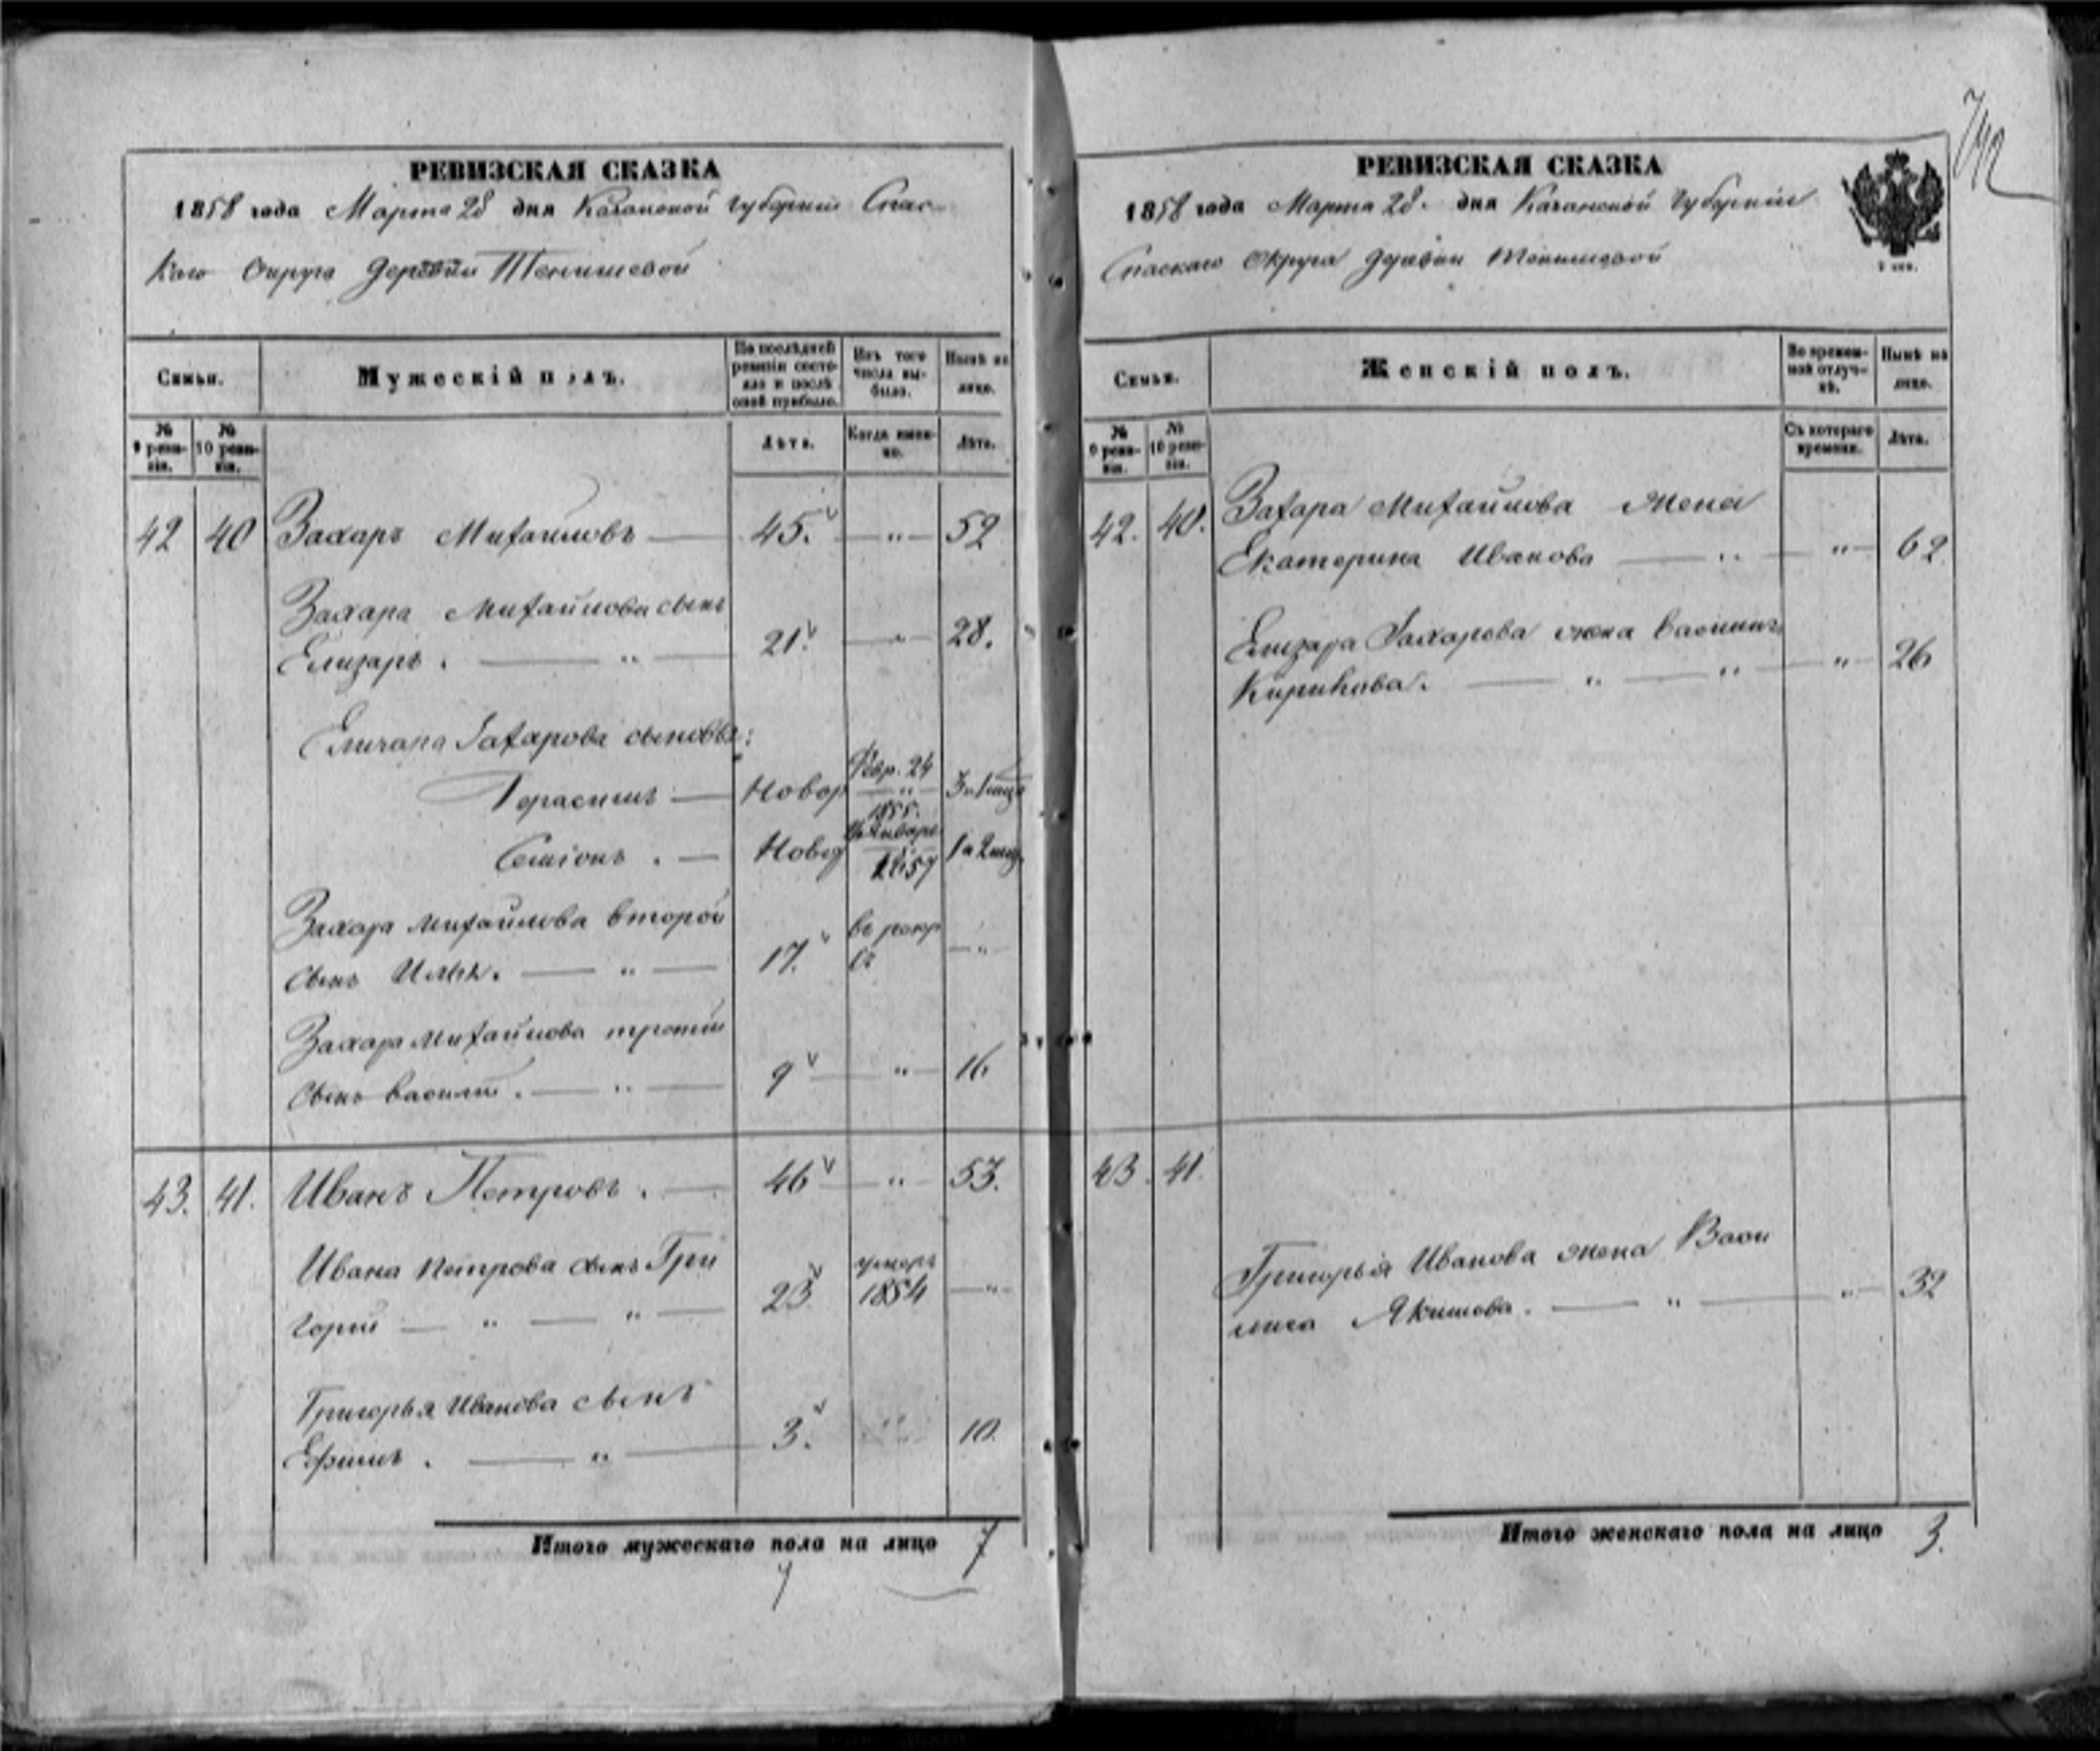 742
РЕВИЗСКАЯ СКАЗКА
1858 года Марта 28 дня Казанской Губернии Спас-
каго Округа Деревни Тенишевой
Семьи.
Мужескій полъ.
По послѣдней ревизіи состояло и послѣ оной прибыло.
Изъ того числа выбыло.
Нынѣ на лицо.
№ 9 ревизіи.
№ 10 ревизіи.
Лѣта.
Когда именно.
Лѣта.
42 40 Захаръ Михайловъ — 45. — " — 52
Захара Михайлова сынъ
Елизаръ. — " — 21. — " — 28.
Елизара Захарова сыновья:
Герасимъ — Новор Февр. 24 1855. 3 и 1 мца
Семіонъ. — Новор Январь 1857 1 и 2 мца
Захара Михайлова второй
сынъ Илья. — " — 17. въ рекр — "
Захара Михайлова третій
сынъ Василій. — " — 9 — " — 16
43. 41. Иванъ Петровъ. — 46 — " — 53.
Ивана Петрова сынъ Гри
горій — " — " — 23 умеръ 1854 — " —
Григорья Иванова сынъ
Ефимъ. — " — 3. " 10.
Итого мужескаго пола на лицо 7
РЕВИЗСКАЯ СКАЗКА
1858 года Марта 28. дня Казанской Губернии
Спаскаго Округа Деревни Тенишевой
Семьи.
Женскій полъ.
Во временной отлучкѣ.
Нынѣ на лицо.
№ 9 ревизіи.
№ 10 ревизіи.
Съ котораго времени.
Лѣта.
42. 40. Захара Михайлова жена
Екатерина Иванова — " — " — 62
Елизара Захарова жена
Кирикова. — " — " — " — 26
43. 41.
Григорья Иванова жена Васи
лиса Якимова. — " — " — 32
Итого женскаго пола на лицо 3.